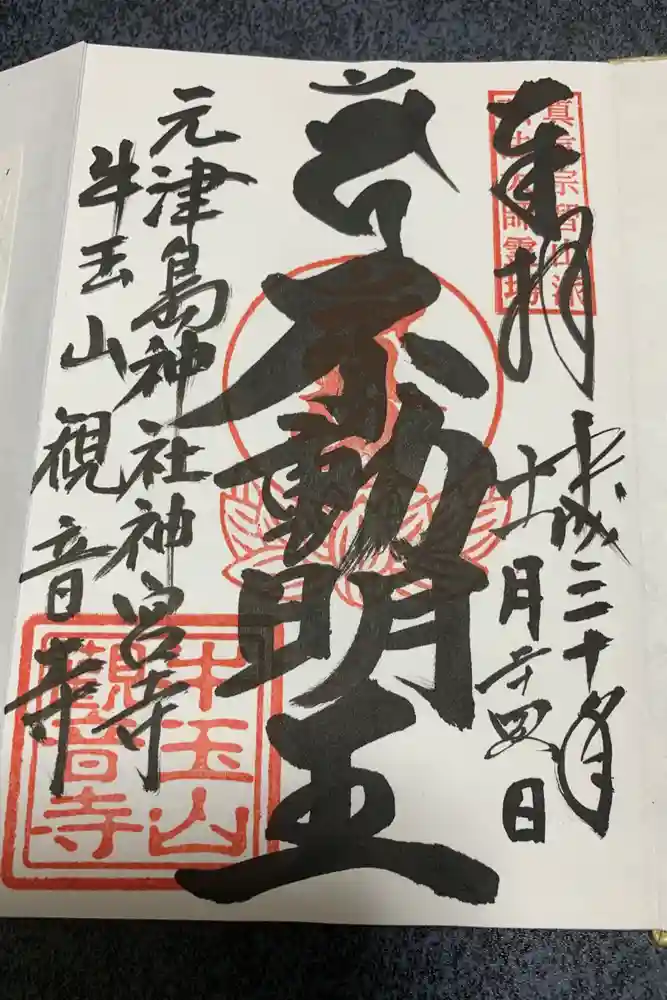 奉拝
眞言宗智山派
弘法大師霊場
平成三十年
十一月廿四日
不動明王
元津島神社神宮寺
牛玉山観音寺
牛玉山
觀音寺